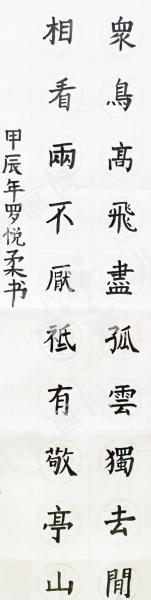 眾鳥高飛盡孤雲獨去閒
相看兩不厭祗有敬亭山
甲辰年罗悦柔书